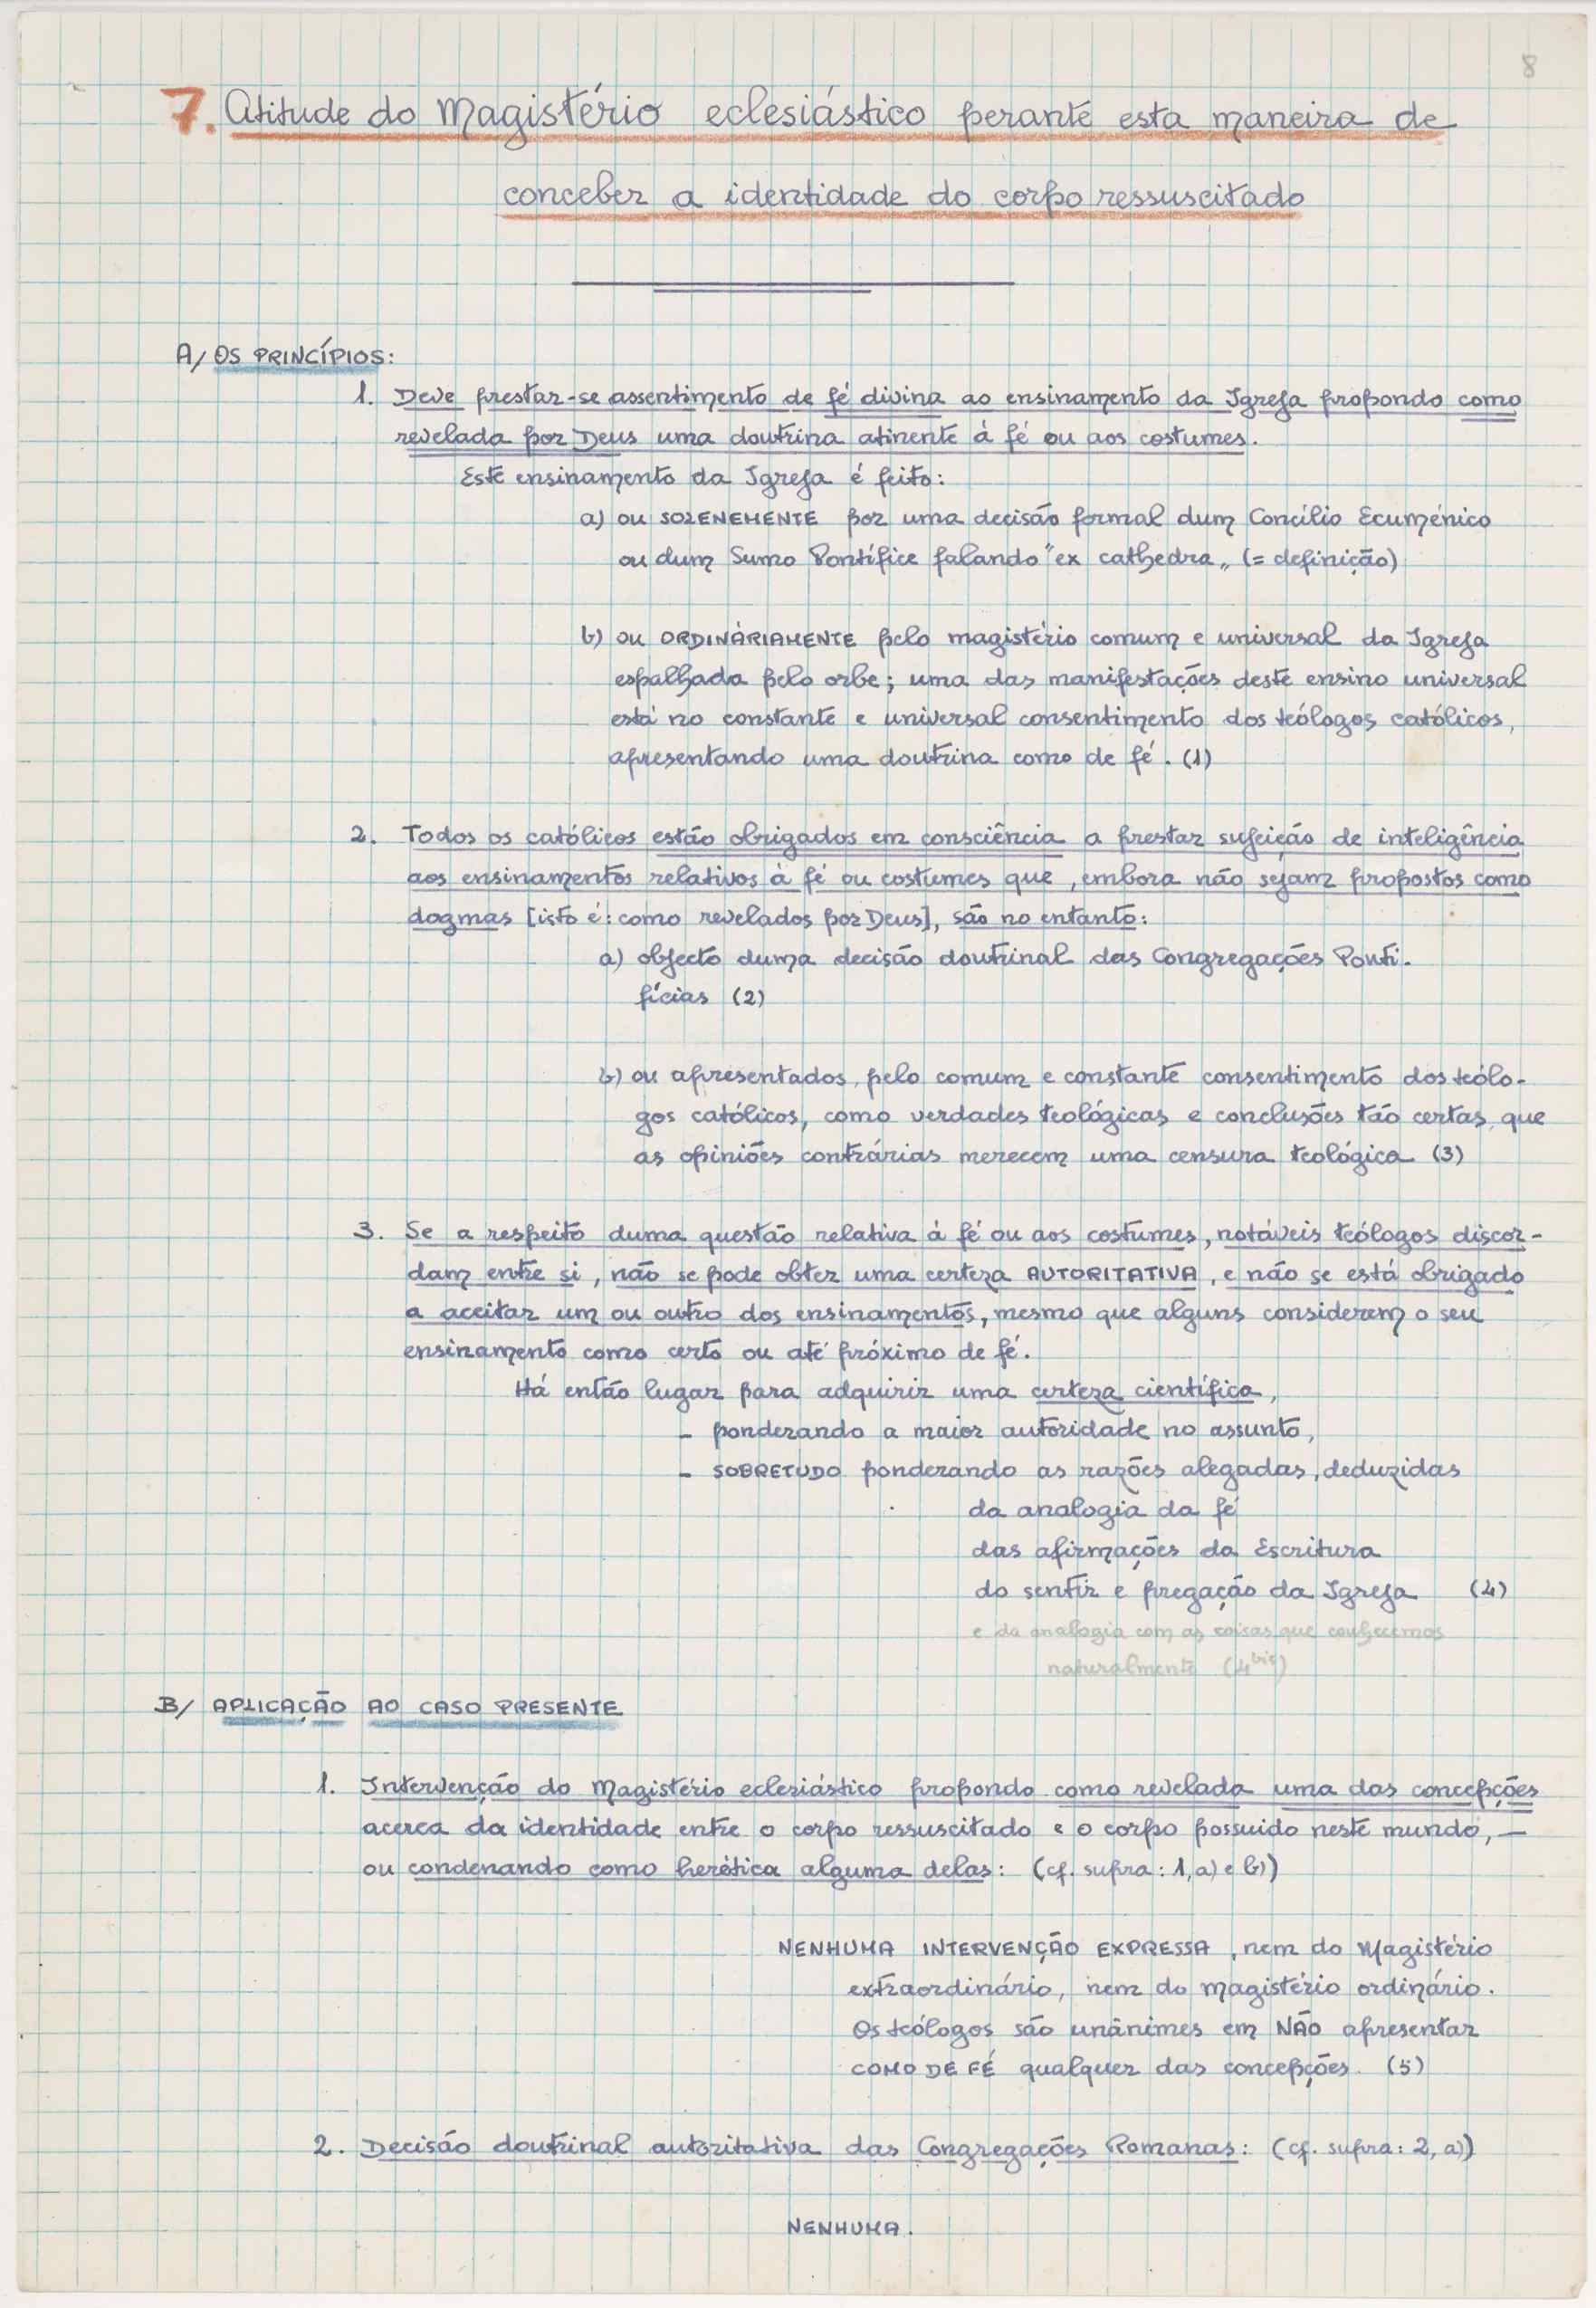 8
7. Atitude do Magistério eclesiástico perante esta maneira de
conceber a identidade do corpo ressuscitado
A/ OS PRINCÍPIOS:
1. Deve prestar-se assentimento de fé divina ao ensinamento da Igreja propondo como
revelada por Deus uma doutrina atinente à fé ou aos costumes.
Este ensinamento da Igreja é feito:
a) ou SOLENEMENTE por uma decisão formal dum Concílio Ecuménico
ou dum Sumo Pontífice falando "ex cathedra„ (= definição)
b) ou ORDINÀRIAMENTE pelo magistério comum e universal da Igreja
espalhada pelo orbe; uma das manifestações deste ensino universal
está no constante e universal consentimento dos teólogos católicos,
apresentando uma doutrina como de fé. (1)
2. Todos os católicos estão obrigados em consciência a prestar sujeição de inteligência
aos ensinamentos relativos à fé ou costumes que, embora não sejam propostos como
dogmas [isto é: como revelados por Deus], são no entanto:
a) objecto duma decisão doutrinal das Congregações Ponti-
fícias (2)
b) ou apresentados, pelo comum e constante consentimento dos teólo-
gos católicos, como verdades teológicas e conclusões tão certas, que
as opiniões contrárias merecem uma censura teológica (3)
3. Se a respeito duma questão relativa à fé ou aos costumes, notáveis teólogos discor-
dam entre si, não se pode obter uma certeza AUTORITATIVA, e não se está obrigado
a aceitar um ou outro dos ensinamentos, mesmo que alguns considerem o seu
ensinamento como certo ou até próximo de fé.
Há então lugar para adquirir uma certeza científica,
- ponderando a maior autoridade no assunto,
- SOBRETUDO ponderando as razões alegadas, deduzidas
da analogia da fé
das afirmações da Escritura
do sentir e pregação da Igreja (4)
e da analogia com as coisas que conhecemos
naturalmente (4bis)
B/ APLICAÇÃO AO CASO PRESENTE
1. Intervenção do Magistério eclesiástico propondo como revelada uma das concepções
acerca da identidade entre o corpo ressuscitado e o corpo possuido neste mundo, —
ou condenando como herética alguma delas: (cf. supra: 1, a) e b))
NENHUMA INTERVENÇÃO EXPRESSA, nem do Magistério
extraordinário, nem do magistério ordinário.
Os teólogos são unânimes em NÃO apresentar
COMO DE FÉ qualquer das concepções. (5)
2. Decisão doutrinal autoritativa das Congregações Romanas: (cf. supra: 2, a))
NENHUMA.